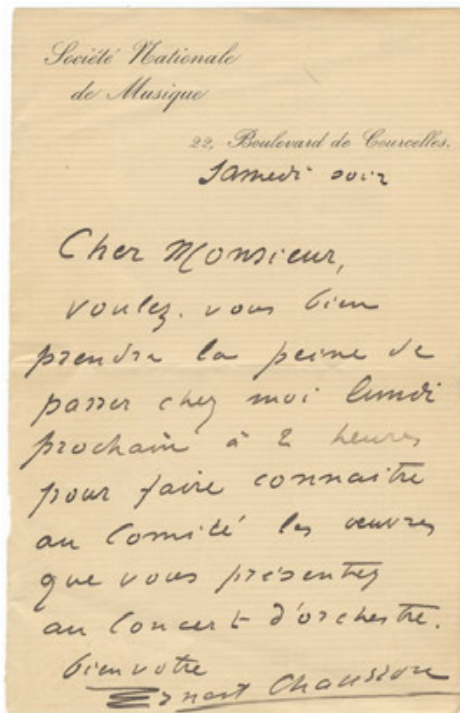 Société Nationale
de Musique
22, Boulevard de Courcelles.
Samedi soir
Cher Monsieur,
voulez-vous bien
prendre la peine de
passer chez moi lundi
prochain à 2 heures
pour faire connaitre
au Comité les œuvres
que vous présentez
au Concert d'orchestre.
bien votre
Ernest Chausson